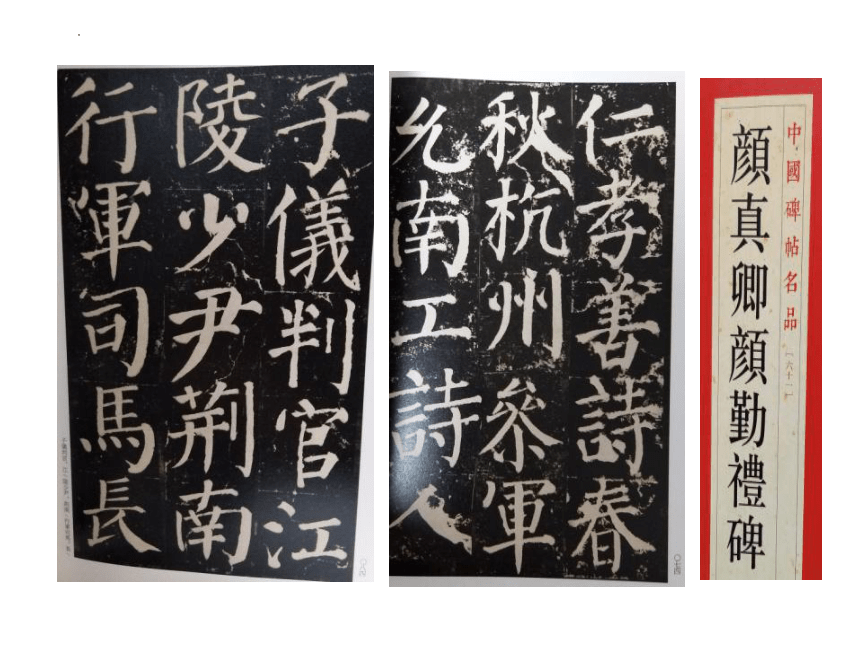 子儀判官江
陵少尹荆南
行軍司馬長
〇八四
仁孝善詩春
秋杭州參軍
允南工詩人
〇七四
中國碑帖名品
［六十一］
顏真卿顏勤禮碑